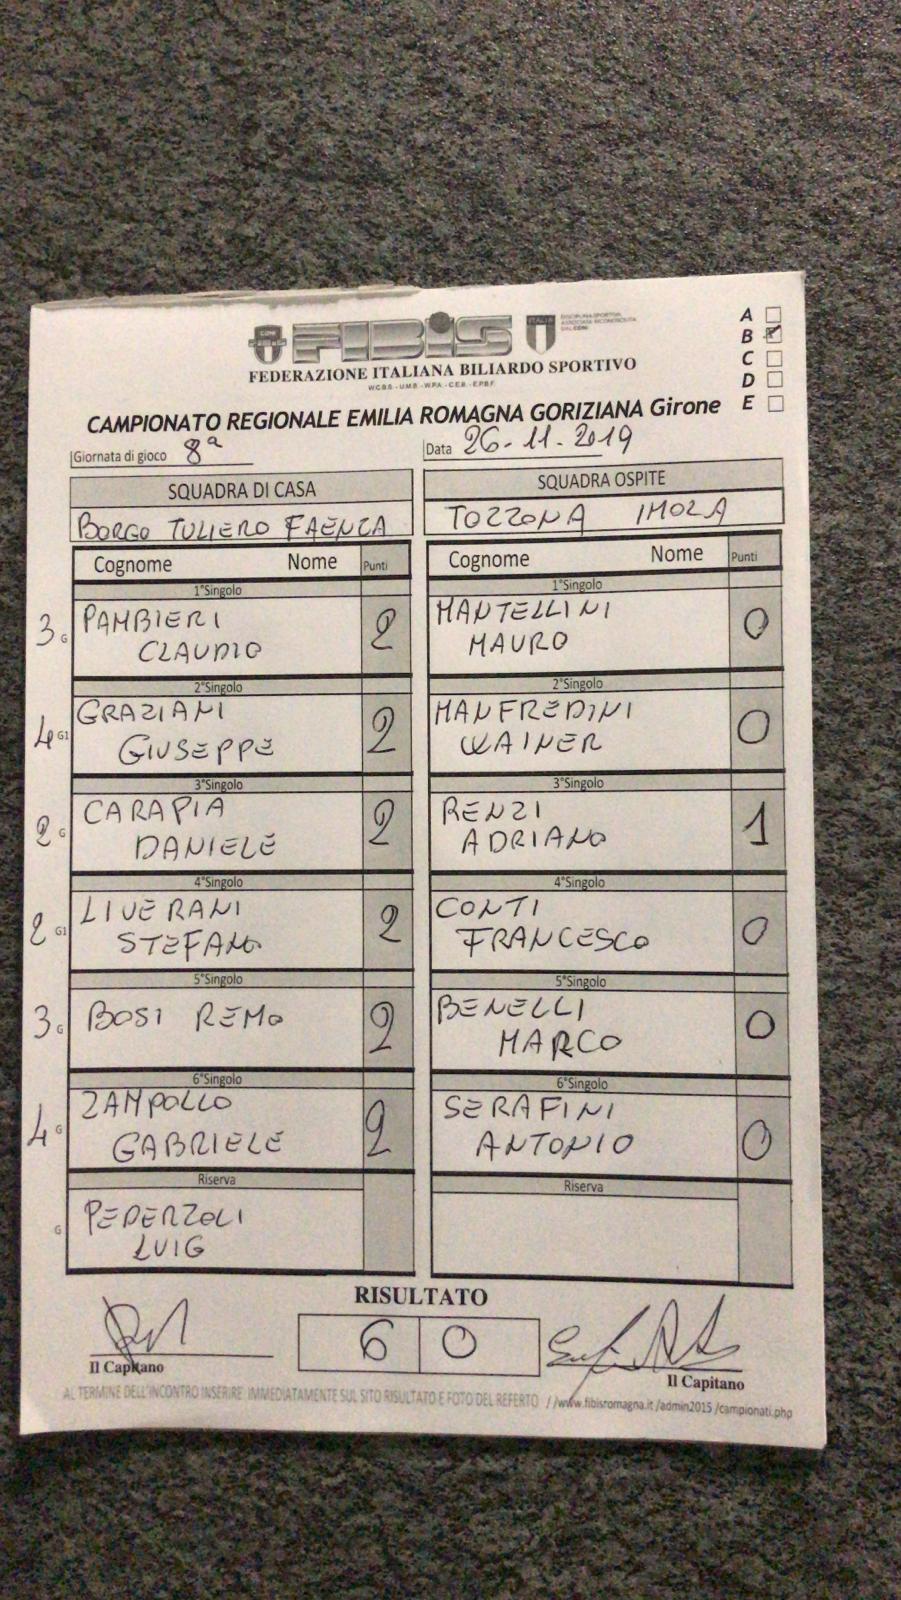 FIBIS
CONI
ITALIA
DISCIPLINA SPORTIVA
ASSOCIATA RICONOSCIUTA
DAL CONI
FEDERAZIONE ITALIANA BILIARDO SPORTIVO
W.C.B.S. - U.M.B. - W.P.A. - C.E.B. - E.P.B.F.
A
B
C
D
E
CAMPIONATO REGIONALE EMILIA ROMAGNA GORIZIANA Girone
Giornata di gioco 8ª Data 26-11-2019
SQUADRA DI CASA SQUADRA OSPITE
BORGO TULIERO FAENZA TOZZONA IMOLA
Cognome Nome Punti Cognome Nome Punti
1°Singolo 1°Singolo
3 G PAMBIERI CLAUDIO 2 MANTELLINI MAURO 0
2°Singolo 2°Singolo
4 G1 GRAZIANI GIUSEPPE 2 MANFREDINI WAINER 0
3°Singolo 3°Singolo
2 G CARAPIA DANIELE 2 RENZI ADRIANO 1
4°Singolo 4°Singolo
2 G1 LIVERANI STEFANO 2 CONTI FRANCESCO 0
5°Singolo 5°Singolo
3 G BOSI REMO 2 BENELLI MARCO 0
6°Singolo 6°Singolo
4 G ZAMPOLLO GABRIELE 2 SERAFINI ANTONIO 0
Riserva Riserva
G PEDERZOLI LUIG
RISULTATO
6 0
Il Capitano Il Capitano
AL TERMINE DELL'INCONTRO INSERIRE IMMEDIATAMENTE SUL SITO RISULTATO E FOTO DEL REFERTO //www.fibisromagna.it/admin2015/campionati.php